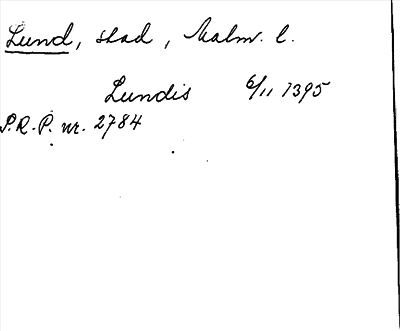 Lund, stad, Malm. l.
Lundis 6/11 1395
S.R.P. nr. 2784